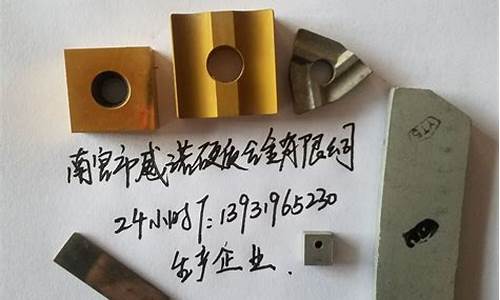 南宫市威诺硬质合金有限公司
24小时T:13931965230
生产企业.
YT5